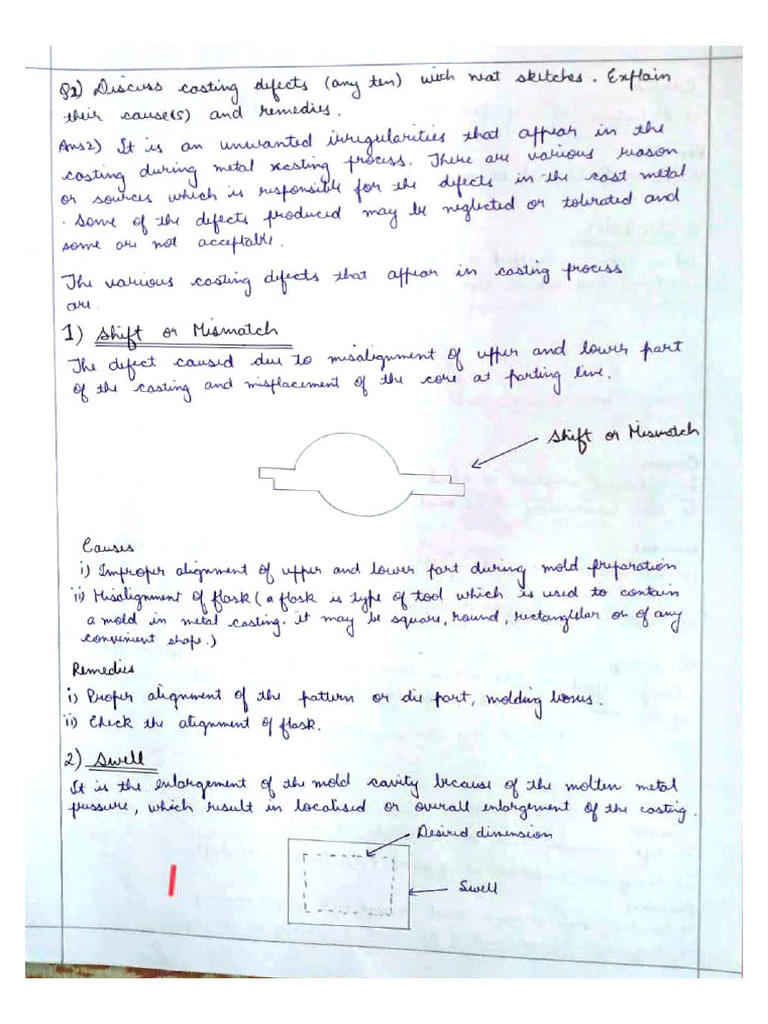 Q2) Discuss casting defects (any ten) with neat sketches. Explain
their cause(s) and remedies.
Ans2) It is an unwanted irregularities that appear in the
casting during metal casting process. There are various reason
or sources which is responsible for the defects in the cast metal
. Some of the defects produced may be neglected or tolerated and
some are not acceptable.
The various casting defects that appear in casting process
are.
1) Shift or Mismatch
The defect caused due to misalignment of upper and lower part
of the casting and misplacement of the core at parting line.
Shift or Mismatch
Causes
i) Improper alignment of upper and lower part during mold preparation
ii) Misalignment of flask (a flask is type of tool which is used to contain
a mold in metal casting. it may be square, round, rectangular or of any
convenient shape.)
Remedies
i) Proper alignment of the pattern or die part, molding boxes.
ii) Check the alignment of flask.
2) Swell
It is the enlargement of the mold cavity because of the molten metal
pressure, which result in localised or overall enlargement of the casting.
Desired dimension
Swell
1